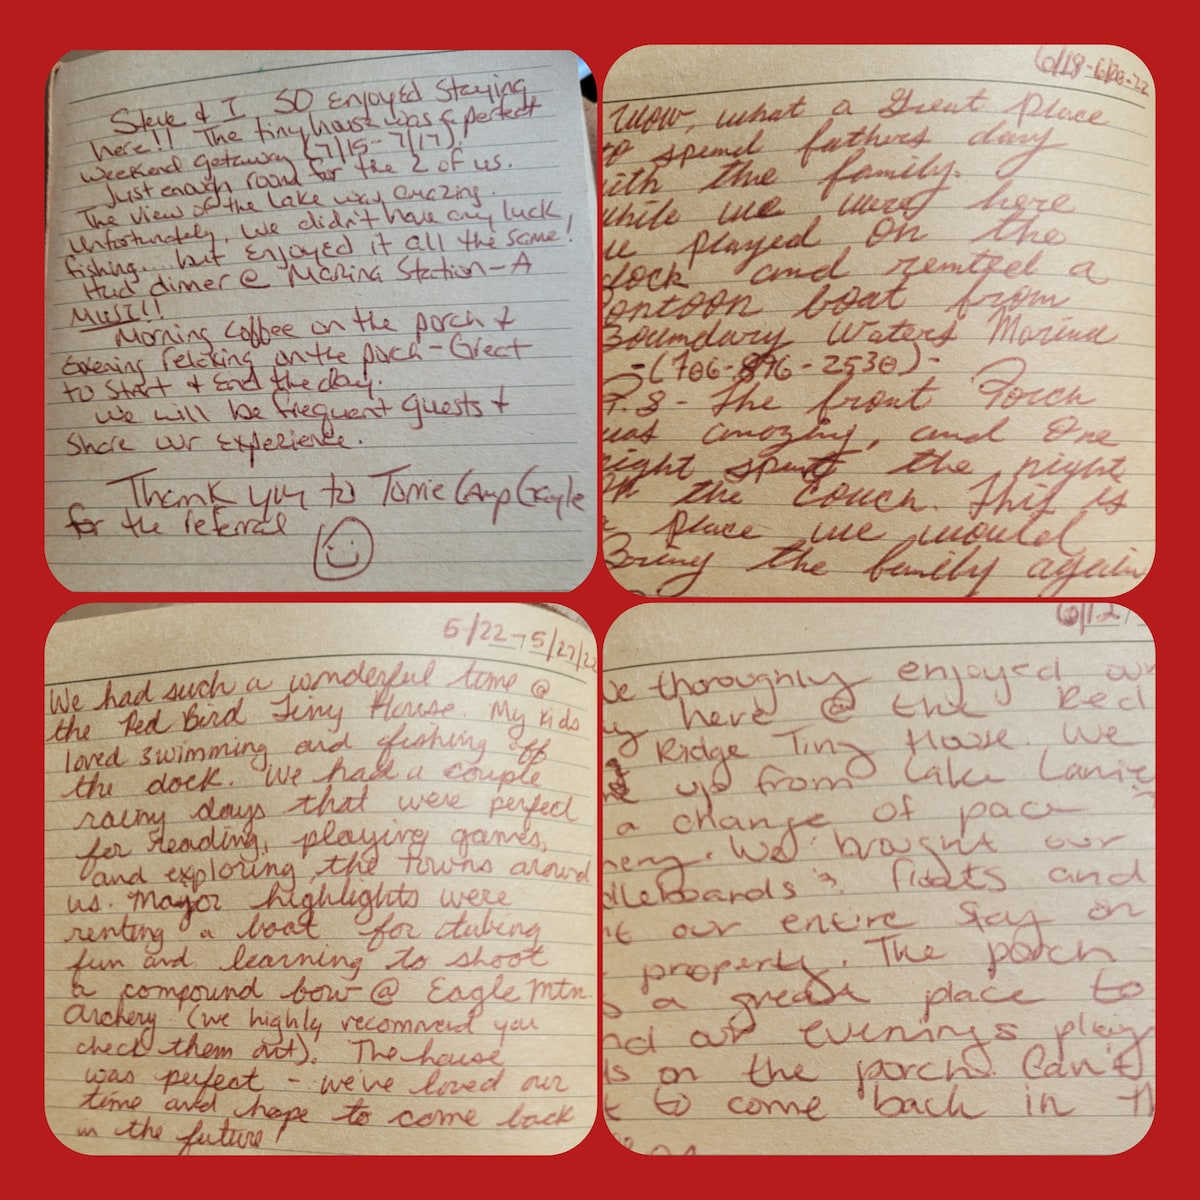 Steve & I SO enjoyed staying
here!! The tiny house was a perfect
weekend getaway (7/15 - 7/17).
Just enough room for the 2 of us.
The view of the lake was amazing.
Unfortunately, we didn't have any luck
fishing.. but enjoyed it all the same!
Had dinner @ Marina Station - A
MUST!!
Morning coffee on the porch &
Evening relaxing on the porch - Great
to start & end the day.
We will be frequent guests &
share our experience.
Thank you to Tomie Camp
for the referral
6/18-6/20-22
Wow, what a Great place
to spend fathers day
ith the family.
while we were here
we played on the
dock and rented a
ontoon boat from
Boundary Waters Marina
-(706-896-2530)-
P.S - The front Porch
was amazing, and One
night spent the night
on the couch. This is
a place we would
Bring the family again
5/22-5/27/22
We had such a wonderful time @
the Red Bird Tiny House. My kids
loved swimming and fishing off
the dock. We had a couple
rainy days that were perfect
for reading, playing games,
and exploring the towns around
us. Major highlights were
renting a boat for tubing
fun and learning to shoot
a compound bow @ Eagle Mtn.
Archery (we highly recommend you
check them out). The house
was perfect - we've loved our
time and hope to come back
in the future!
6/12
we thoroughly enjoyed our
y here @ the Red
Ridge Tiny House. We
up from Lake Lanie
a change of pace
nery. We brought our
dleboards, floats and
our entire stay on
property. The porch
s a great place to
nd our evenings play
ds on the porch. Can't
t to come back in